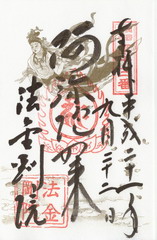 奉拝 平成二十一年
九月二十二日
阿弥陀如来
法金剛院